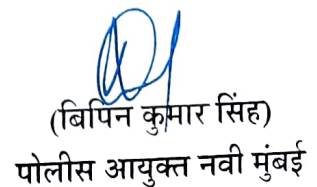 (बिपिन कुमार सिंह)
पोलीस आयुक्त नवी मुंबई